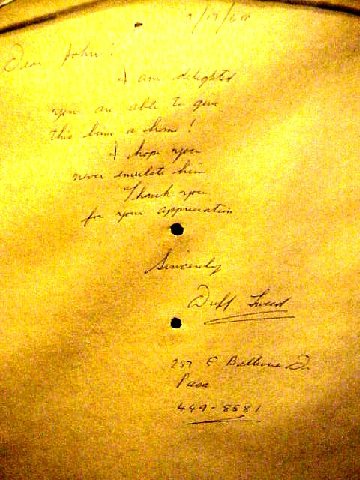 Dear John!
I am delighted
you are able to give
this bum a home!
I hope you
never emulate him
Thank you
for your appreciation
Sincerely
Duff
E Balboa Dr.
Pasa
449-8581